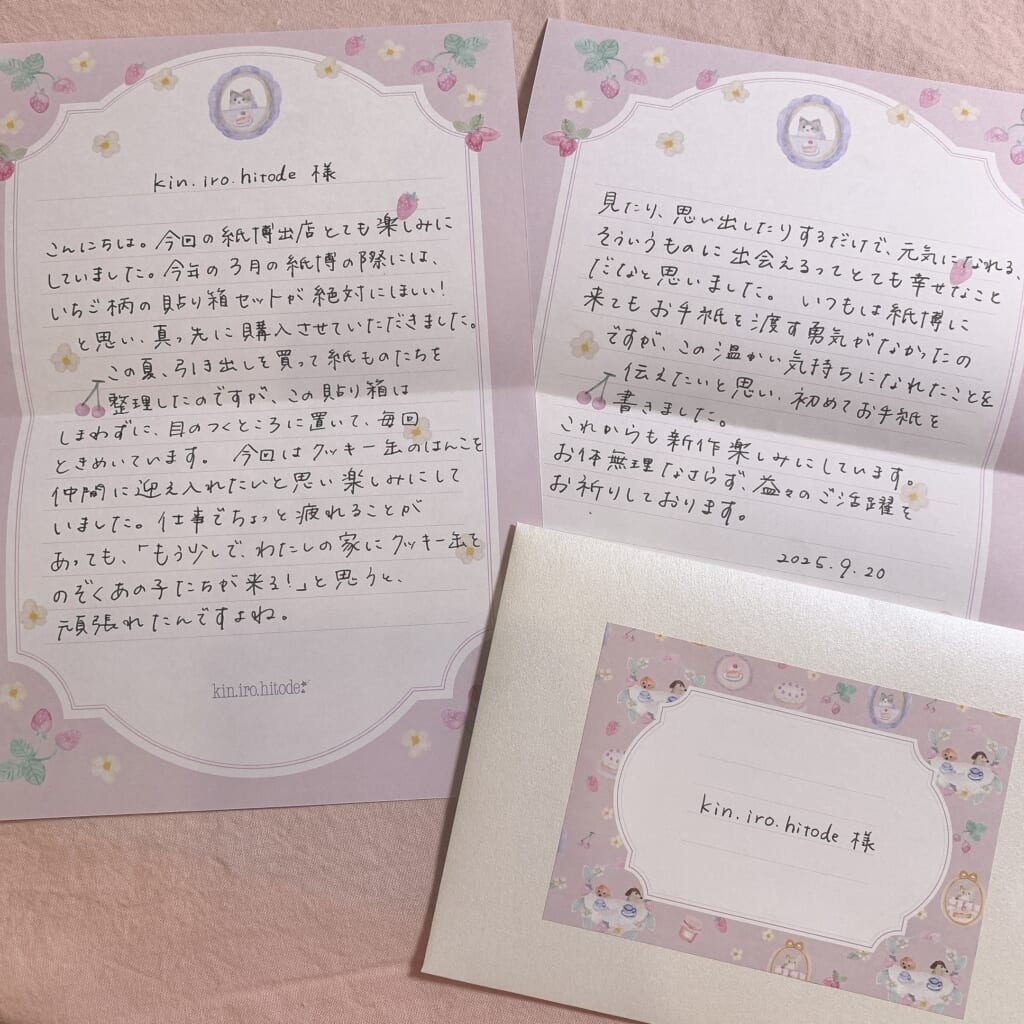 kin.iro.hitode 様
こんにちは。今回の紙博出店とても楽しみに
していました。今年の3月の紙博の際には、
いちご柄の貼り箱セットが絶対にほしい!
と思い、真っ先に購入させていただきました。
この夏、引き出しを買って紙ものたちを
整理したのですが、この貼り箱は
しまわずに、目のつくところに置いて、毎回
ときめいています。今回はクッキー缶のはんこを
仲間に迎え入れたいと思い楽しみにして
いました。仕事でちょっと疲れることが
あっても、「もう少しで、わたしの家にクッキー缶を
のぞくあの子たちが来る!」と思うと、
頑張れたんですよね。
kin.iro.hitode
見たり、思い出したりするだけで、元気になれる、
そういうものに出会えるってとても幸せなこと
だなと思いました。いつもは紙博に
来てもお手紙を渡す勇気がなかったの
ですが、この温かい気持ちになれたことを
伝えたいと思い、初めてお手紙を
書きました。
これからも新作楽しみにしています。
お体無理なさらず、益々のご活躍を
お祈りしております。
2025.9.20
kin.iro.hitode 様